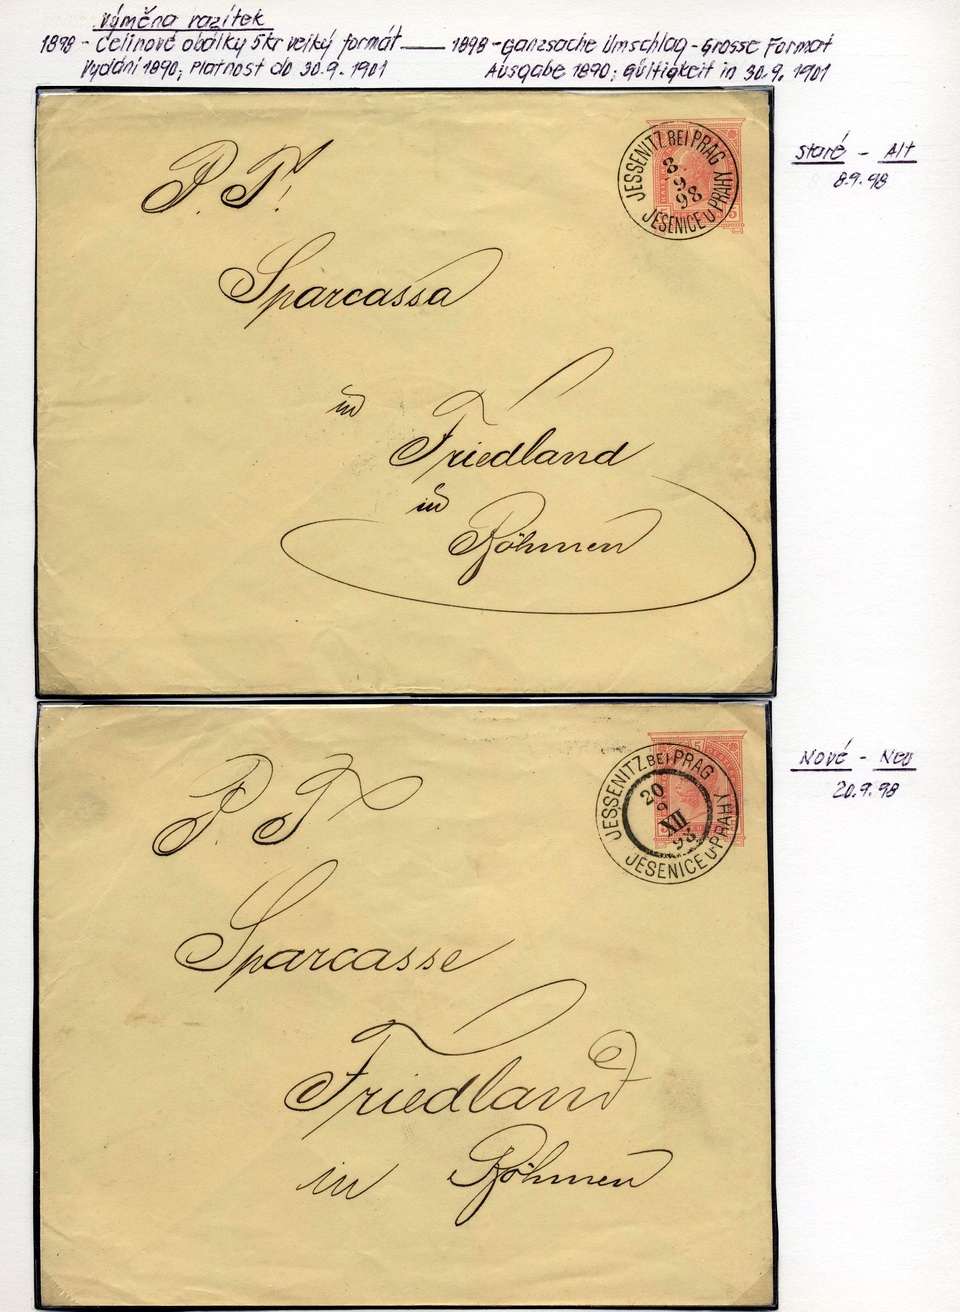 výměna razítek
1898 - Celinové obálky 5kr velký formát — 1898 - Ganzsache Umschlag - Grosse Format
Vydání 1890; Platnost do 30.9.1901
Ausgabe 1890; Gültigkeit in 30.9.1901
staré - Alt
8.9.98
JESSENITZ BEI PRAG
8.
9
98
JESENICE U PRAHY
5
5
P. T.!
Sparcassa
in
Friedland
in
Böhmen
Nové - Neu
20.9.98
JESSENITZ BEI PRAG
20
9
XII
98
JESENICE U PRAHY
P. T.
Sparcasse
Friedland
in Böhmen